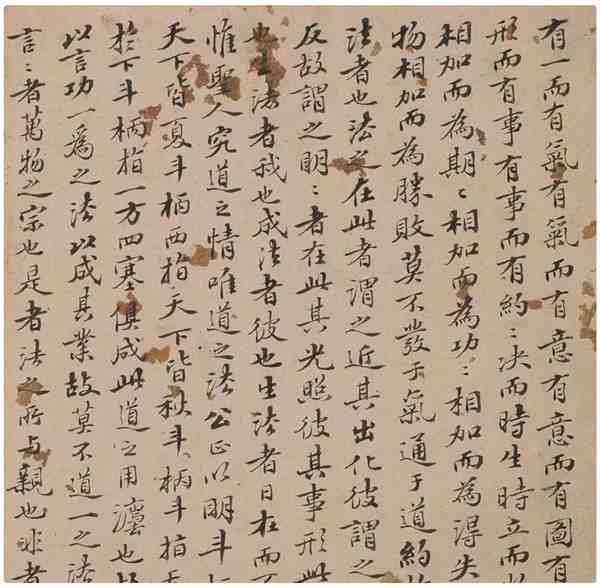 有一而有氣有氣而有意有意而有圖有
形而有事有事而有約〻决而時生時立而
相加而為期〻相加而為功〻相加而為得失
物相加而為勝敗莫不發于氣通于道約
法者也法之在此者謂之近其出化彼謂之
反故謂之明〻者在此其光照彼其事形此
也生法者我也成法者彼也生法者日在而不
惟聖人究道之情唯道之法公正以明斗
天下皆夏斗柄西指天下皆秋斗柄指
於下斗柄指一方四塞俱成此道之用灋也
以言功一為之法以成其業故莫不道一之法
言〻者萬物之宗也是者法之所与親也非者